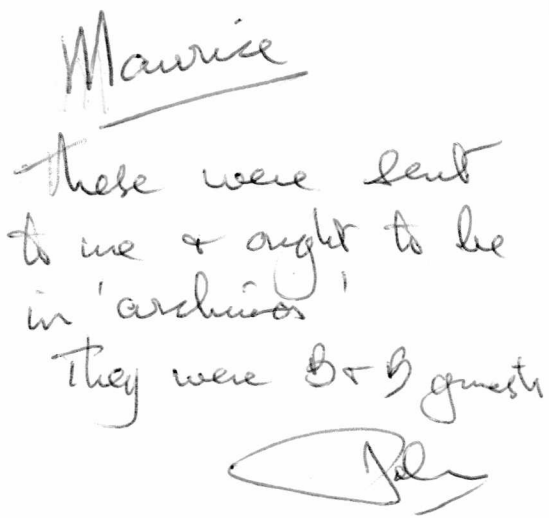 Maurice
These were sent
to me & ought to be
in 'archives'
They were B & B guests